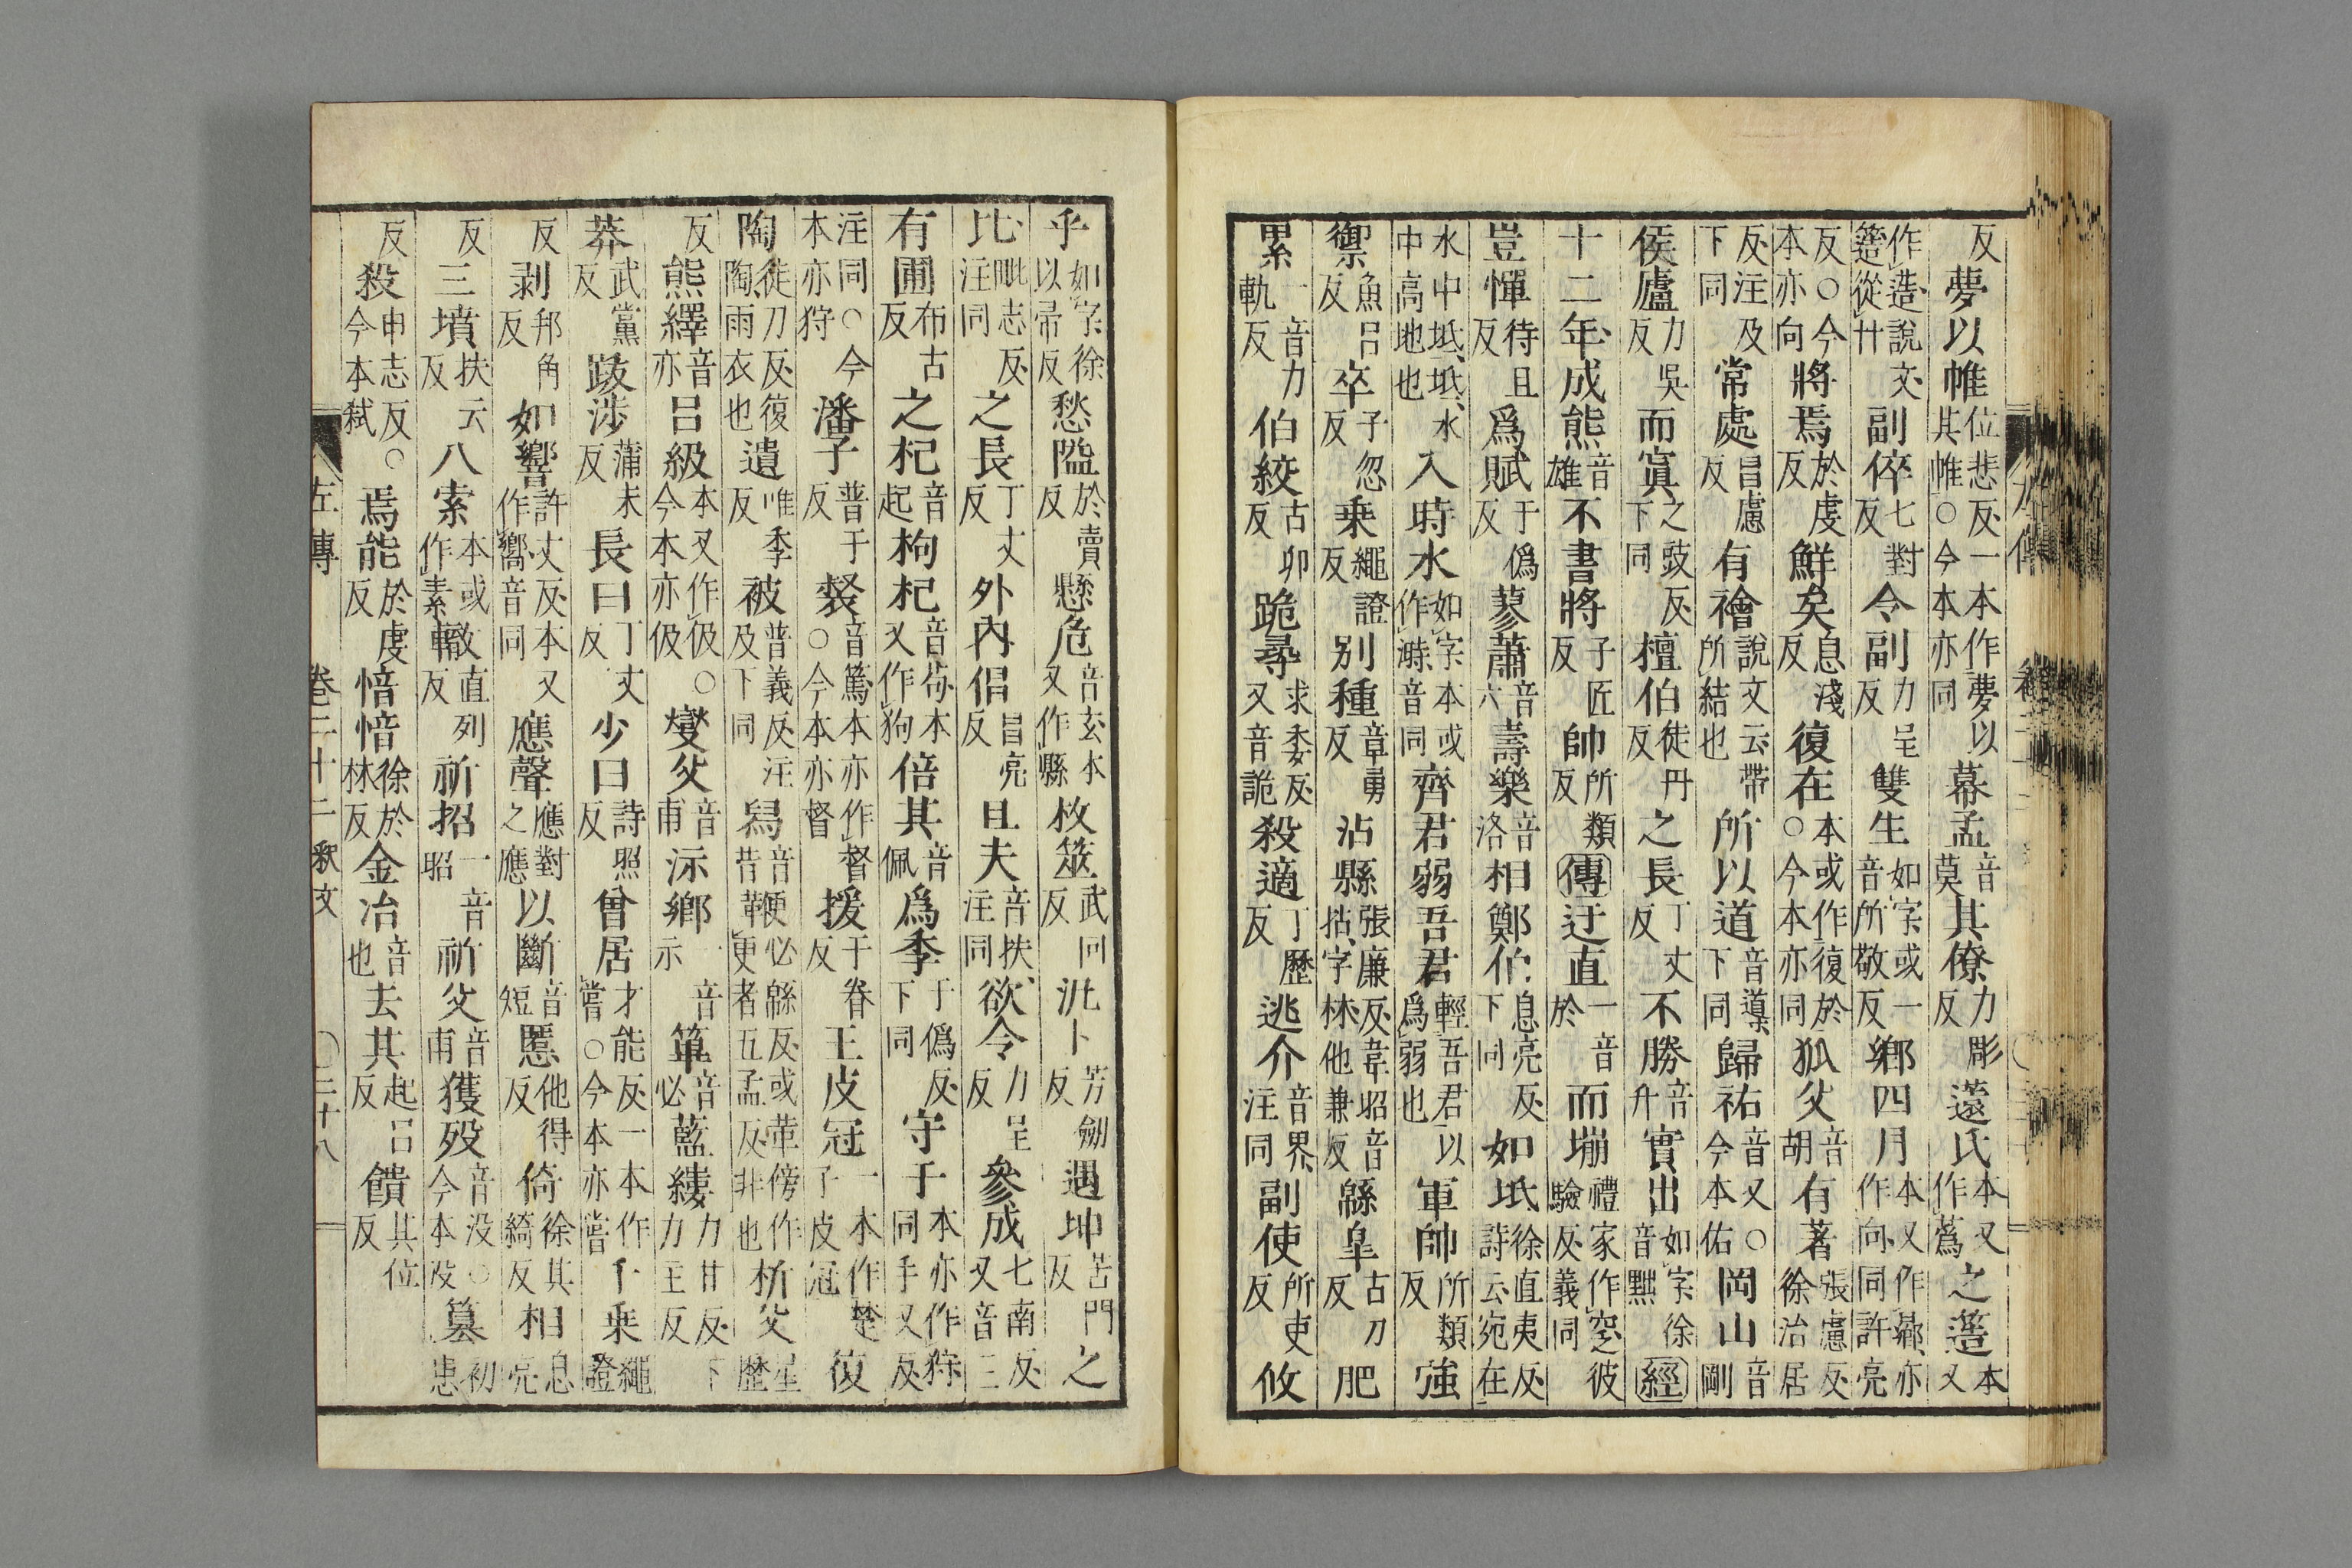 反夢以帷位悲反一本作夢以其帷○今本亦同幕孟音莫其僚力彫反薳氏本又作蒍之簉本又
作造說文簉從艸副倅七對反令副力呈反雙生如字或一音所敬反鄉四月本又作曏亦作向同許亮
反○今本亦向將焉於虔反鮮矣息淺反復在本或作復於○今本亦同狐父音胡有著張慮反徐治居
反注及下同常處昌慮反有襘說文云帶所結也所以道音導下同歸祐音又○今本佑岡山音剛
侯廬力吳反而寘之豉反下同檀伯徒丹反之長丁丈反不勝音升實出如字徐音黜經
十二年成熊音雄不書將子匠反帥所類反傳迂直一音於而塴禮家作窆彼驗反義同
豈憚待旦反爲賦于僞反蓼蕭音六壽樂音洛相鄭伯息亮反下同如坻徐直夷反詩云宛在
水中坻坻水中高地也入時水如字本或作溡音同齊君弱吾君輕吾君以爲弱也軍帥所類反強
禦魚呂反卒子忽反乘繩證反別種章勇反沾縣張廉反韋昭音拈字林他兼反緜臯古刀反肥
累一音力軌反伯絞古卯反跪尋求委反又音詭殺適丁歷反逃介音界注同副使所吏反攸
乎如字徐以帚反愁隘於賣反懸危音玄本又作縣枚筮武回反汎卜芳劒反遇坤苦門反之
比毗志反注同之長丁丈反外內倡昌亮反且夫音扶注同欲令力呈反參成七南反又音三
有圃布古反之杞音起枸杞音苟本又作狗倍其音佩爲季于僞反下同守于本亦作狩同手又反
注同○今本亦狩潘子普于反裻音篤本亦作督○今本亦督援于眷反王皮冠一本作楚子皮冠復
陶徒刀反復陶雨衣也遺唯季反被普義反注及下同舄音昔鞭必緜反或革傍作更者五孟反非也析父星歷
反熊繹音亦呂級本又作伋○今本亦伋燮父音甫沶鄉一音示篳音必藍縷力甘反下力主反
莽武黨反跋涉蒲末反長曰丁丈反少曰詩照反曾居才能反一本作嘗○今本亦嘗千乘繩證
反剥邦角反如響許丈反本又作嚮音同應聲應對之應以斷音短慝他得反倚徐其綺反相息亮
反三墳扶云反八索本或作素轍直列反祈招一音昭祈父音甫獲歿音没○今本殁篡初患
反殺申志反○今本弑焉能於虔反愔愔徐於林反金冶音也去其起呂反饋其位反
左傳 卷二十二 釈文 ○三十八